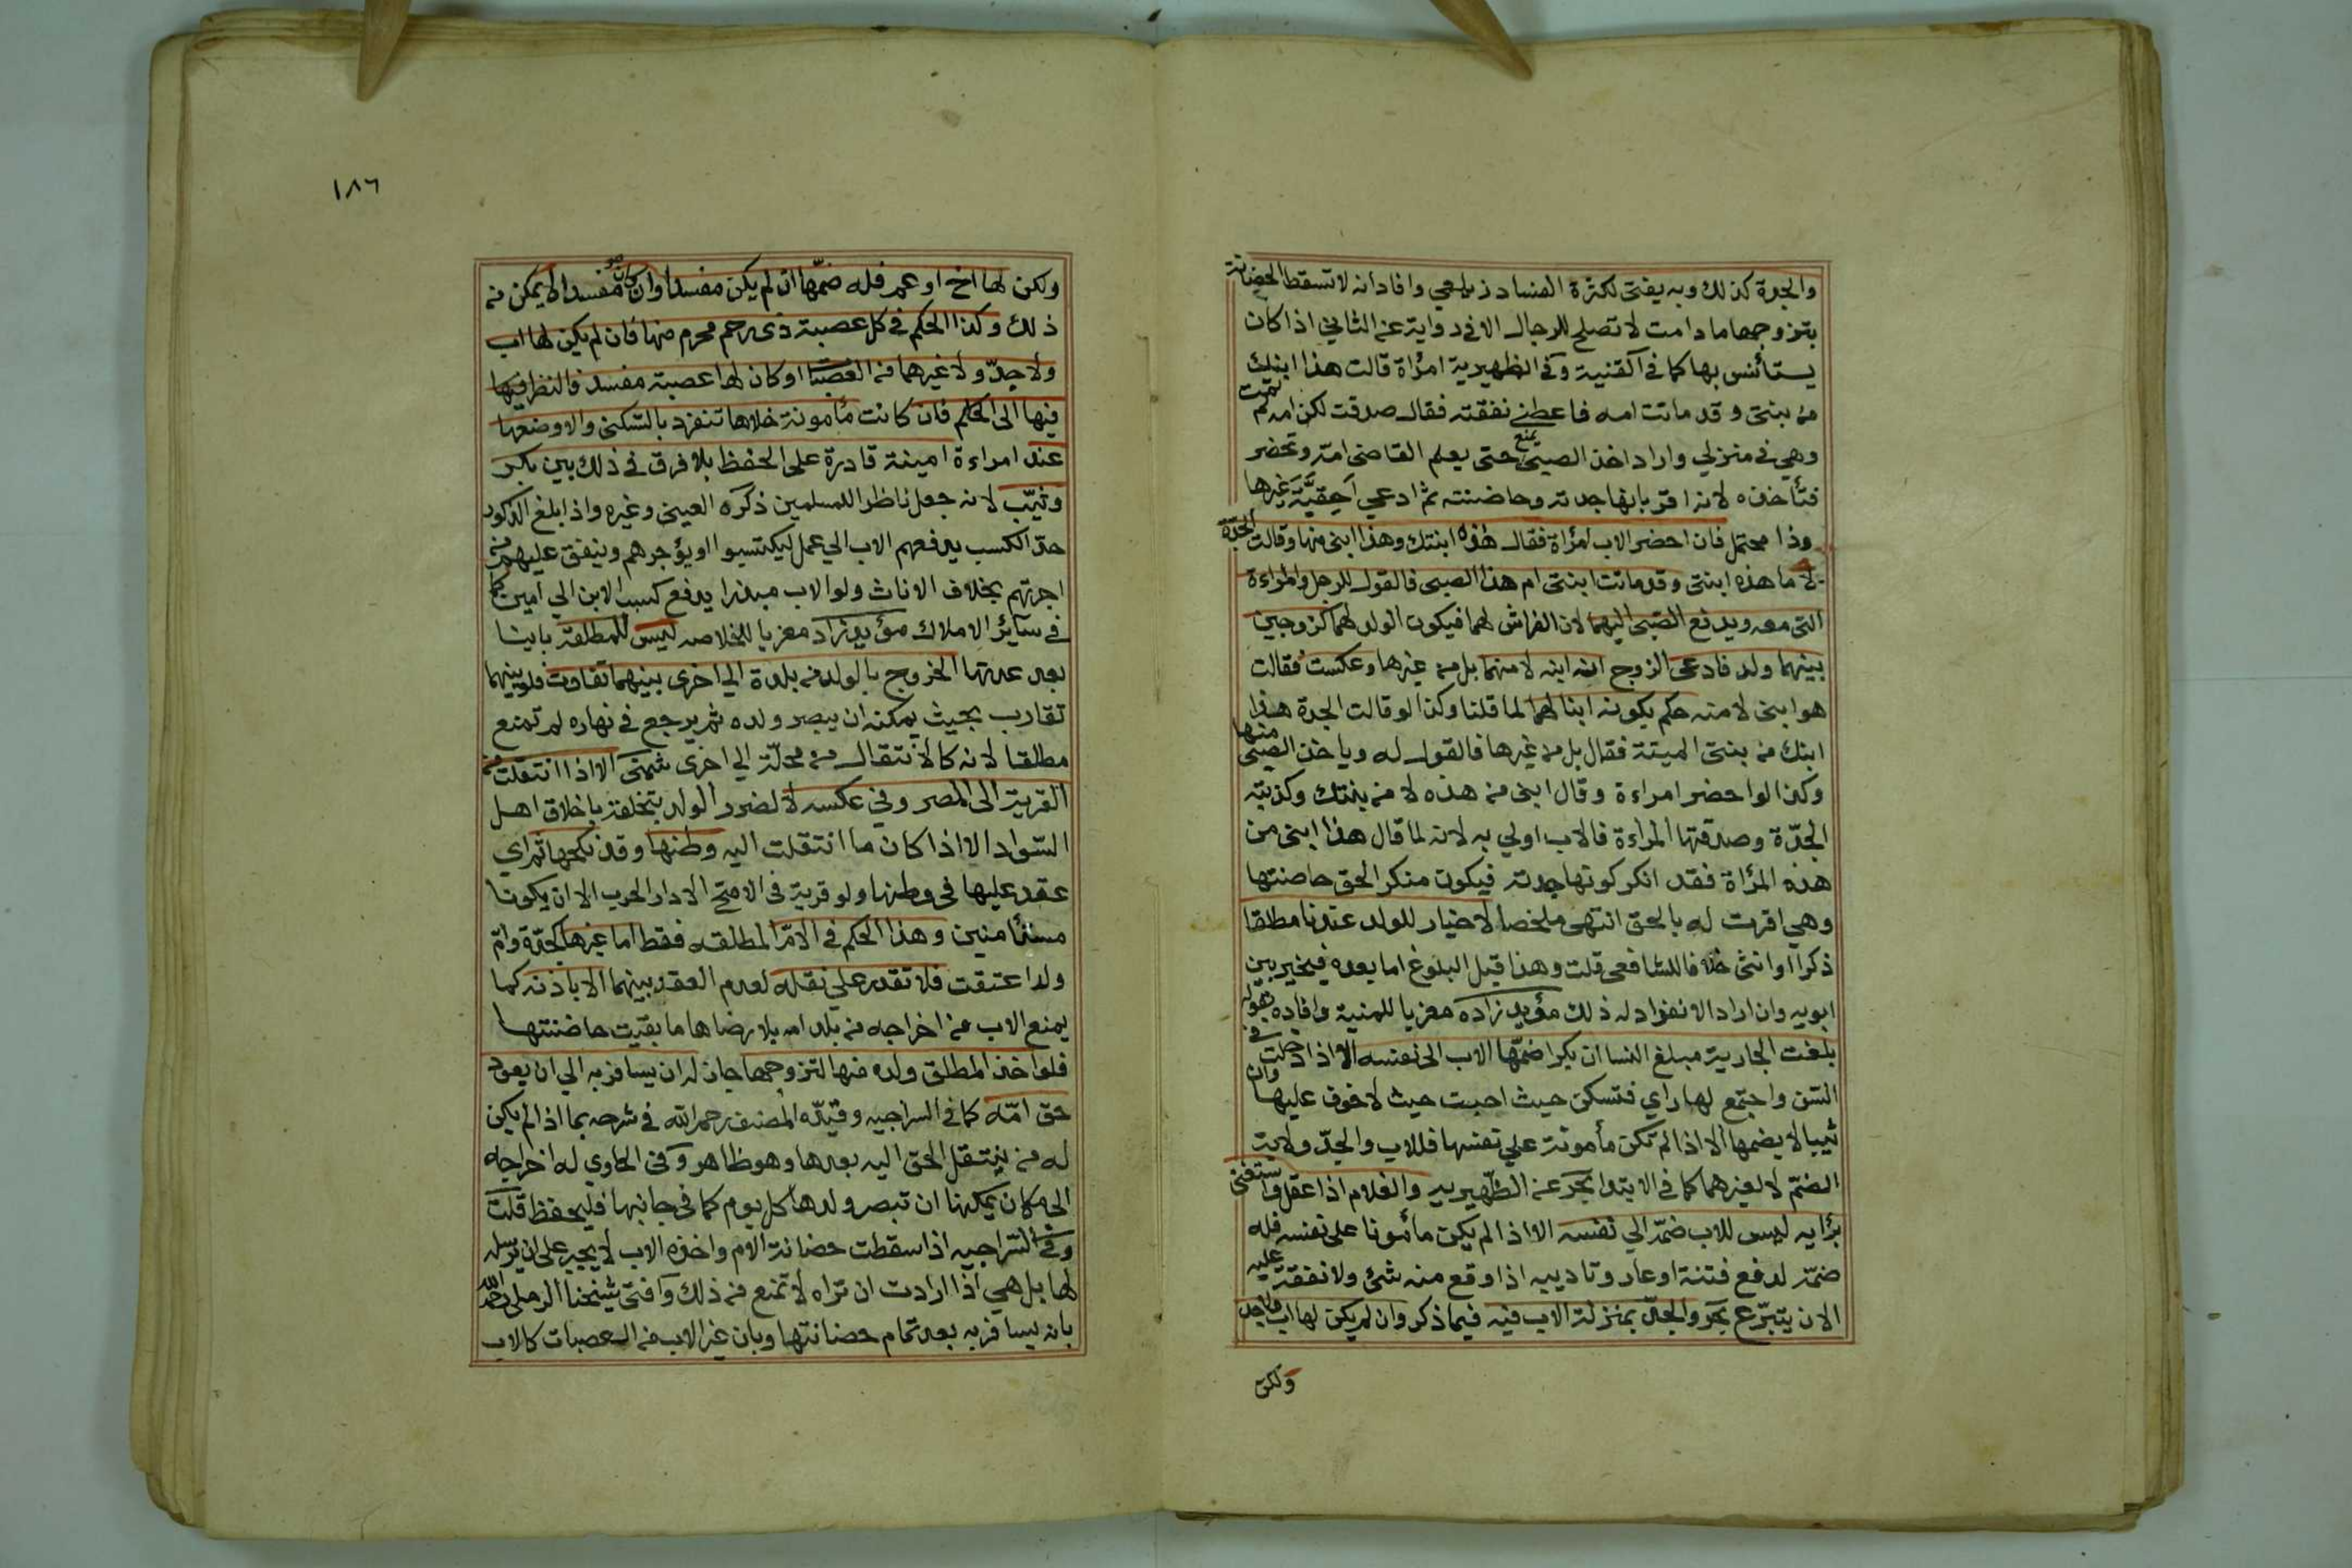 والجدة كذلك وبه يفتى لكثرة الفساد زيلعي وافاد انه لا تسقط الحضانة
بتزوجها ما دامت لا تصلح للرجال الا في رواية عن الثاني اذا كان
يستأنس بها كما في القنية وفي الظهيرية امرأة قالت هذا ابنك
من بنتي وقد ماتت امه فاعطني نفقته فقال صدقت لكن امه لم تمت
وهي في منزلي واراد اخذ الصبي يمنع حتى يعلم القاضي امه وتحضر
فتأخذه لانه اقر بانها جدته وحاضنته ثم ادعى احقية غيرها
وذا محتمل فان احضر الاب امرأة فقال هذه ابنتك وهذا ابني منها وقالت الجدة
لا ما هذه ابنتي وقد ماتت ابنتي ام هذا الصبي فالقول للرجل والمراءة
التي معه ويدفع الصبي اليهما لان الفراش لهما فيكون الولد لهما كزوجين
بينهما ولد فادعى الزوج انه ابنه لا منهما بل من غيرها وعكست فقالت
هو ابني لا منه حكم بكونه ابنا لهما لما قلنا وكذا لو قالت الجدة هذا
ابنك من بنتي الميتة فقال بل من غيرها فالقول له وياخذ الصبي منها
وكذا لو احضر امراءة وقال ابني من هذه لا من بنتك وكذبته
الجدّة وصدقتها المراءة فالاب اولي به لانه لما قال هذا ابني من
هذه المرأة فقد انكر كونها جدته فيكون منكر الحق حاضنتها
وهي اقرت له بالحق انتهى ملخصا لا خيار للولد عندنا مطلقا
ذكرا او انثى خلافا للشافعي قلت وهذا قبل البلوغ اما بعده فيخير بين
ابويه وان اراد الانفراد له ذلك مؤيد زاده معزيا للمنية وافاده بقوله
بلغت الجارية مبلغ النسا ان بكرا ضمّها الاب الى نفسه الا اذا دخلت في
السّن واجتمع لها راي فتسكن حيث احبت حيث لا خوف عليها وان
ثيبا لا يضمها الا اذا لم تكن مأمونة علي نفسها فللاب والجدّ ولاية
الضمّ لا لغيرهما كما في الابتدا بحر عن الظّهيرية والغلام اذا عقل واستغنى
برأيه ليس للاب ضمّه الي نفسه الا اذا لم يكن مأمونا على نفسه فله
ضمّه لدفع فتنة او عار وتاديبه اذا وقع منه شئ ولا نفقة عليه
الا ن يتبّرع بحر والجدّ بمنزلة الاب فيه فيما ذكر وان لم يكن لها اب ولا جد
ولكن
١٨٦
ولكن لها اخ او عم فله ضمّها ان لم يكن مفسدا وان كان مفسدا لا يمكن من
ذلك وكذا الحكم في كل عصبة ذى رحم محرم منها فان لم يكن لها اب
ولا جدّ ولا غيرهما من العصبات او كان لها عصبة مفسد فالنظر فيها
فيها الى الحاكم فان كانت مأمونة خلاها تنفرد بالسّكنى والا وضعها
عند امراءة امينة قادرة على الحفظ بلا فرق في ذلك بين بكر
وثيّب لانه جعل ناظرا للمسلمين ذكره العيني وغيره واذا بلغ الذكور
حدّ الكسب يدفعهم الاب الي عمل ليكتسبوا او يؤجرهم وينفق عليهم من
اجرتهم بخلاف الاناث ولو الاب مبذرا يدفع كسب الابن الي امين كما
في سائر الاملاك مؤيد زاد معزيا للخلاصه ليس للمطلقة باينا
بعد عدتها الخروج بالولد من بلدة الي اخرى بينهما تفاوت فلو بينهما
تقارب بحيث يمكنه ان يبصر ولده ثم يرجع في نهاره لم تمنع
مطلقا لانه كالانتقال من محلّة الي اخرى شمنى الا اذا انتقلت من
القرية الى المصر وفي عكسه لا لضرر الولد بتخلقه باخلاق اهل
السّواد الا اذا كان ما انتقلت اليه وطنها وقد نكحها ثم اي
عقد عليها في وطنها ولو قرية في الاصح الا دار الحرب الا ان يكونا
مستأمنين وهذا الحكم في الامّ المطلقه فقط اما غيرها كجدّة وامّ
ولد اعتقت فلا تقدر علي نقله لعدم العقد بينهما الا باذنه كما
يمنع الاب من اخراجه من بلد امه بلا رضاها ما بقيت حاضنتها
فلو اخذ المطلق ولده منها لتزوجها جاز له ان يسافر به الي ان يعود
حق امّه كما في السراجيه وقيدّه المصنف رحمه الله في شرحه بما اذا لم يكن
له من ينتقل الحق اليه بعدها وهو ظاهر وفي الحاوي له اخراجه
الى مكان يمكنها ان تبصر ولدها كل يوم كما في جانبها فليحفظ قلت
وفي السّراجيه اذا سقطت حضانة الام واخذه الاب لا يجبر على ان يرسله
لها بل هي اذا ارادت ان تراه لا تمنع من ذلك وافتى شيخنا الرملي رحمه الله
بانه يسافر به بعد تمام حضانتها وبان غير الاب من العصبات كالاب